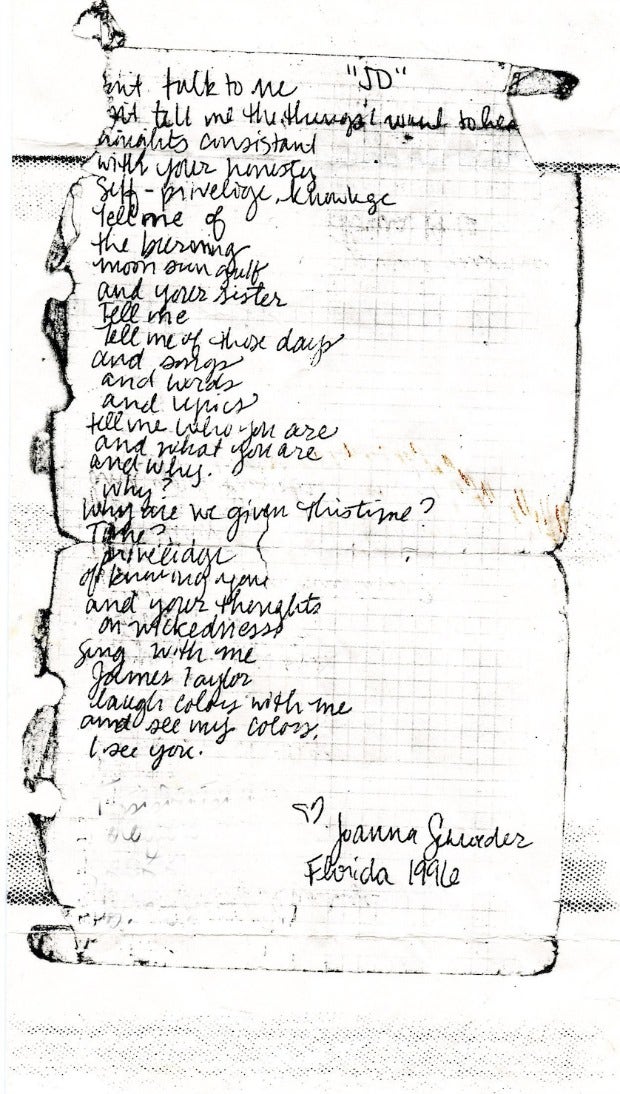 talk to me "JD"
tell me the things I want to hea
oughts consistant
with your honesty
Self-priveloge, knowlege
Tell me of
the burning
moon sun gulf
and your sister
Tell me
Tell me of those days
and songs
and words
and lyrics
tell me who you are
and what you are
and why.
why?
Why are we given this time?
Time?
priveledge
of knowing you
and your thoughts
on wickedness
Sing with me
James Taylor
laugh colors with me
and see my colors.
I see you.
♡ Joanna Schroeder
Florida 1996